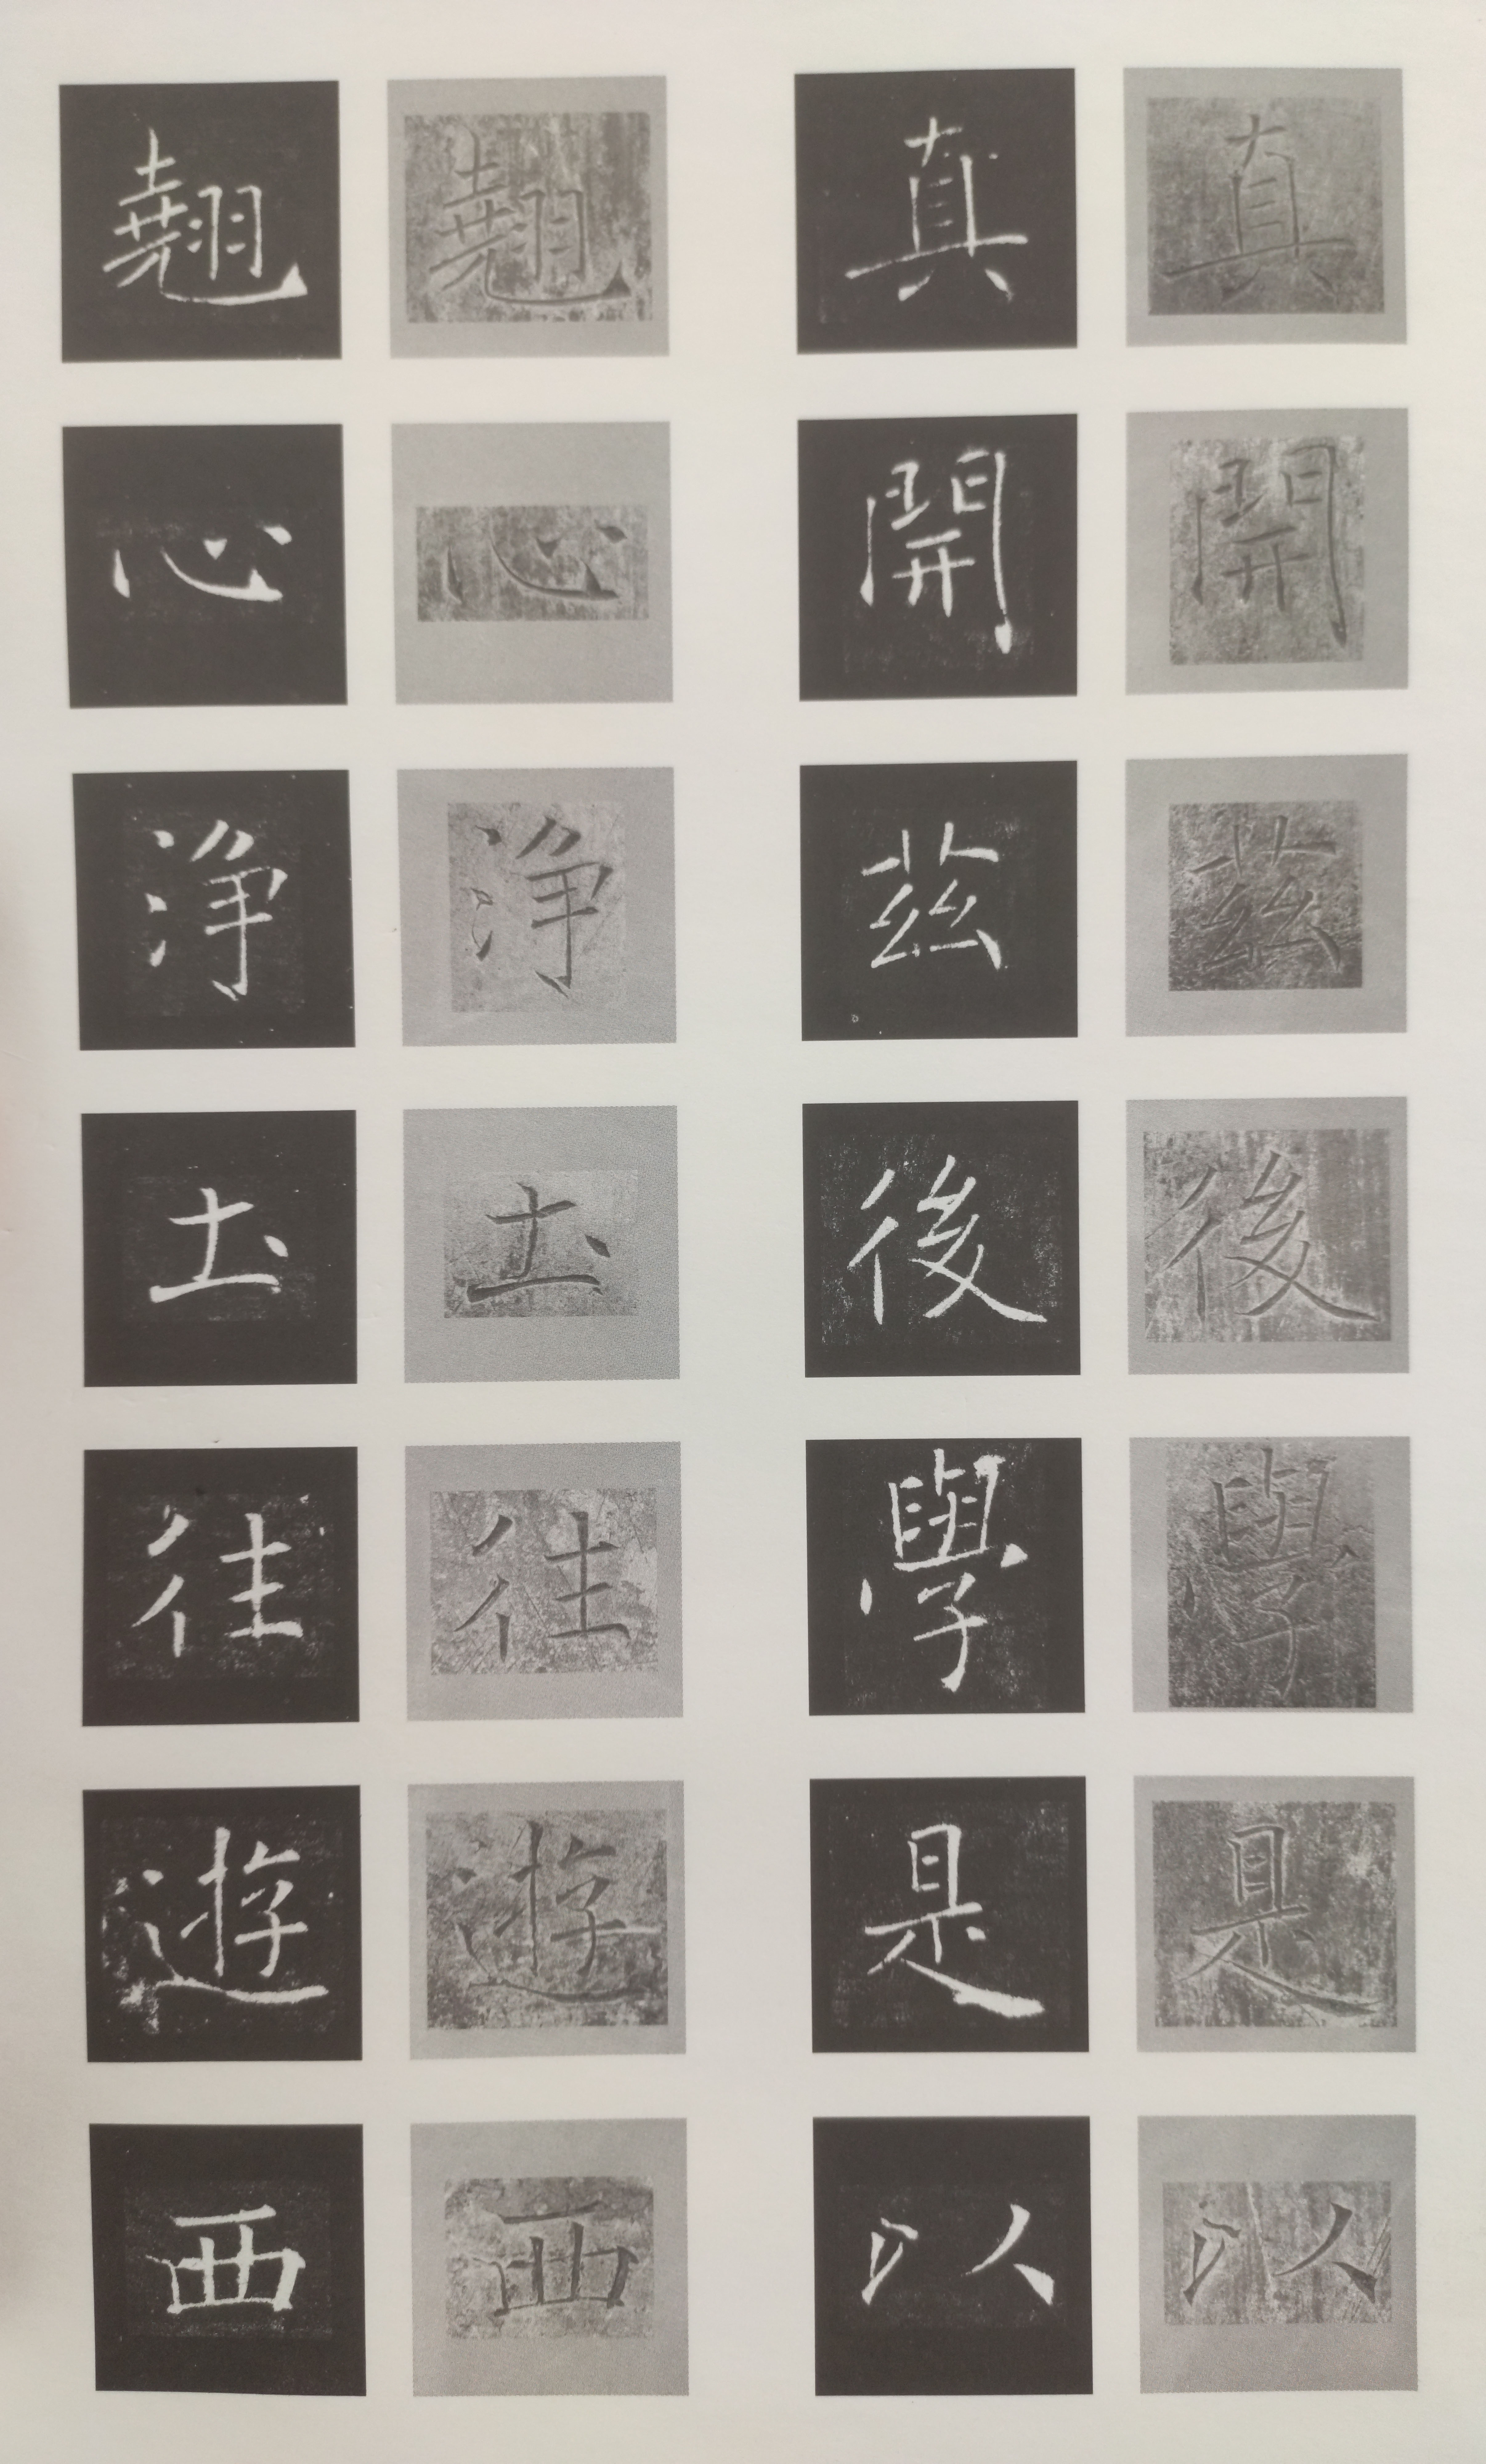 真開茲後學是以
真開茲後學是以
翹心浄圡往遊西
翹心浄圡往遊西